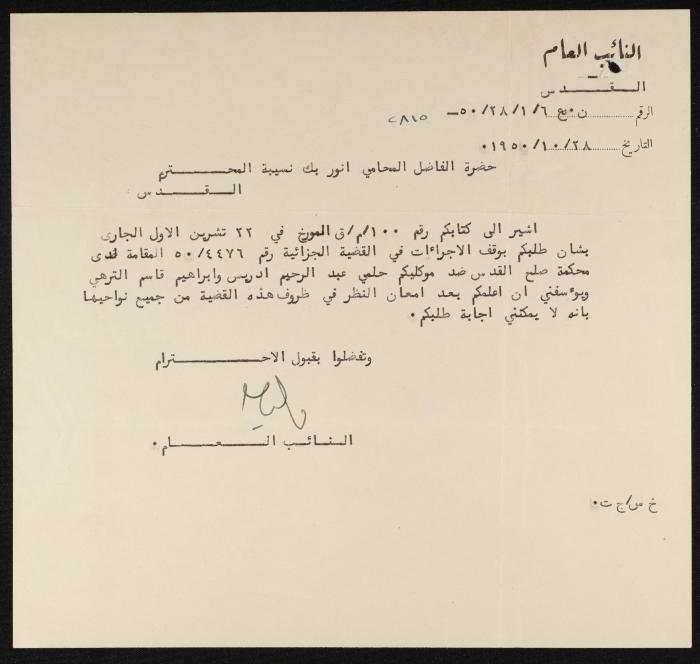 النائب العام
القدس
الرقم ن٠ع ٥٠/٢٨/١/٦ــ ٢٨١٥
التاريخ ١٩٥٠/١٠/٢٨٠
حضرة الفاضل المحامي انور بك نسيبة المحـــترم
القـــدس
اشير الى كتابكم رقم ١٠٠/م/ق المورخ في ٢٢ تشرين الاول الجارى
بشان طلبكم بوقف الاجراءات في القضية الجزائية رقم ٥٠/٤٤٧٦ المقامة لدى
محكمة صلح القدس ضد موكليكم حلمي عبد الرحيم ادريس وابراهيم قاسم الترهي
ويوءسفني ان اعلمكم بعد امعان النظر في ظروف هذه القضية من جميع نواحيها
بانه لا يمكنني اجابة طلبكم٠
وتفضلوا بقبول الاحـــترام
النائب العـــام٠
خ س/ج ت٠